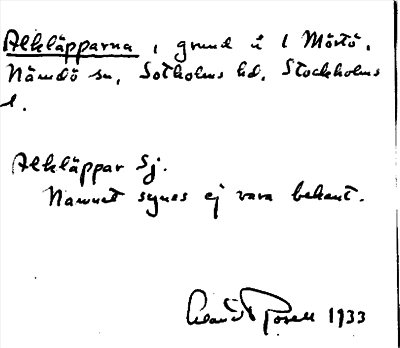 Alkläpparna, grund i 1 Mörtö,
Nämdö sn, Sotholms hd, Stockholms
l.
Alkläppar Sj.
Namnet synes ej vara bekant.
Rosell 1933